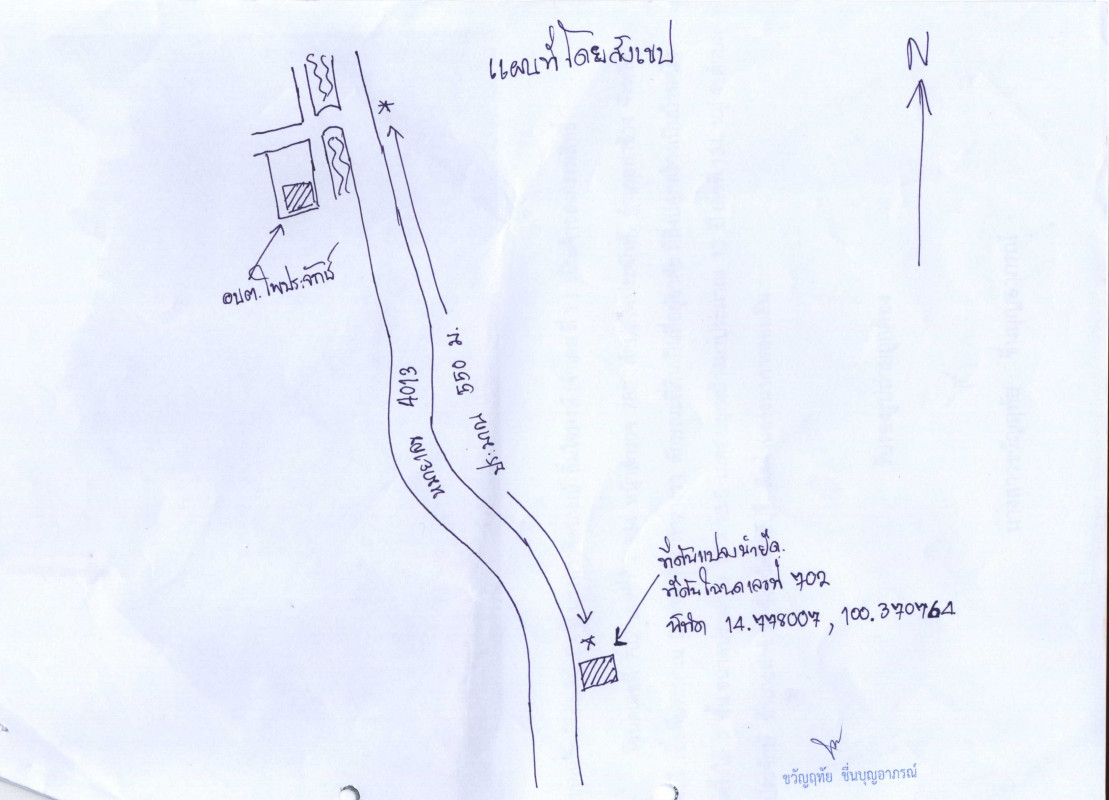 แผนที่โดยสังเขป
N
อบต.โพประจักษ์
ระยะทาง 550 ม.
4013
ทางหลวง
ที่ดินแปลงนำยึด.
ที่ดินโฉนดเลขที่ 702
พิกัด 14.778007, 100.370764
ขวัญฤทัย ชื่นบุญอาภรณ์